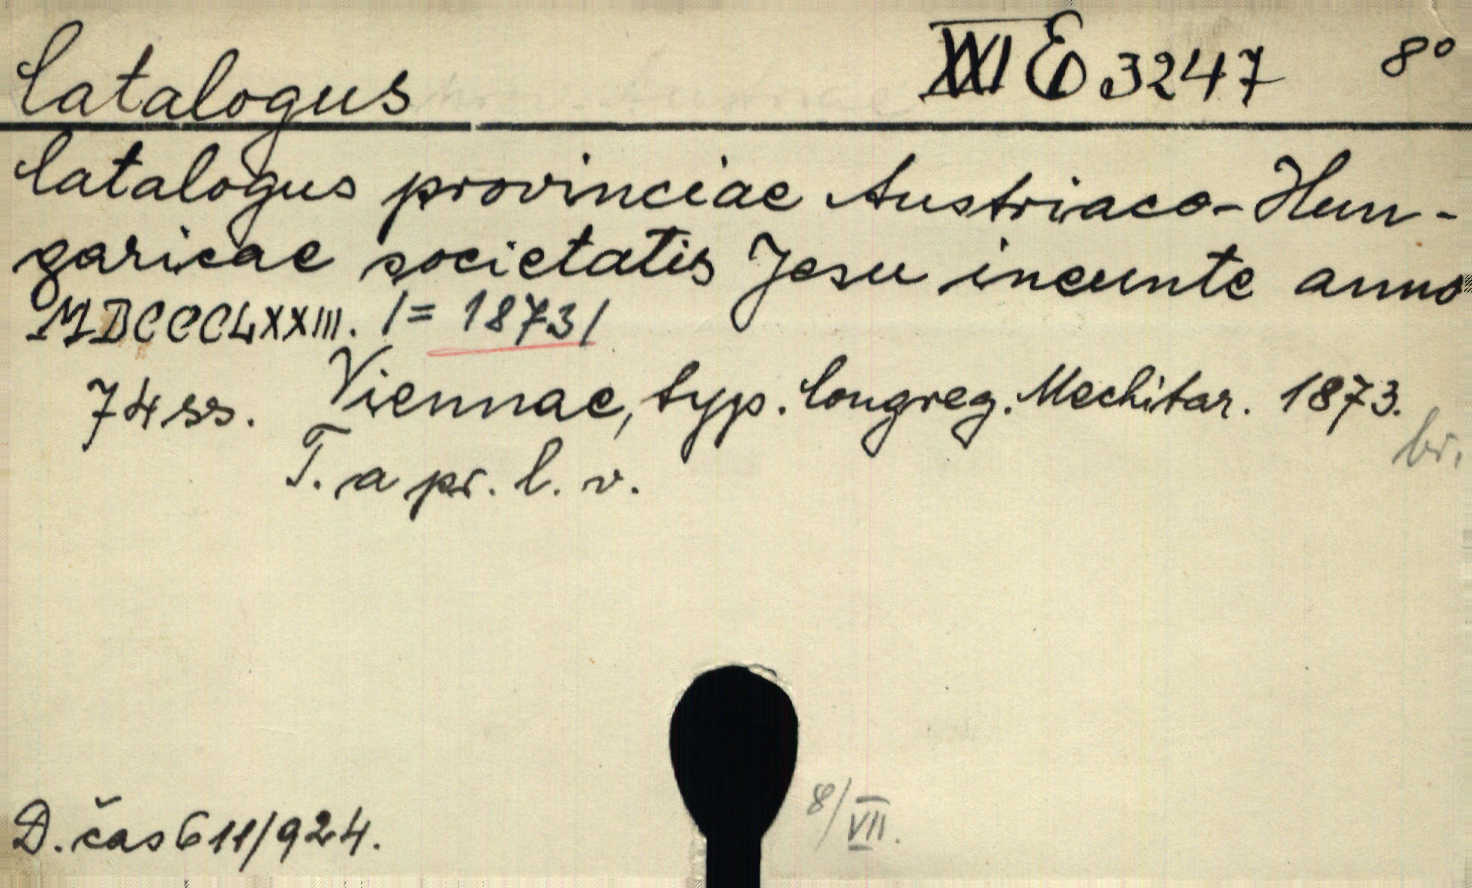 Catalogus XXI E 3247 8°
Catalogus provinciae Austriaco-Hun-
garicae societatis Jesu ineunte anno
MDCCCLXXIII. /= 1873/
74 ss. Viennae, typ. Congreg. Mechitar. 1873.
br.
T. a pr. l. v.
D. čas 611/924. 8/VII.